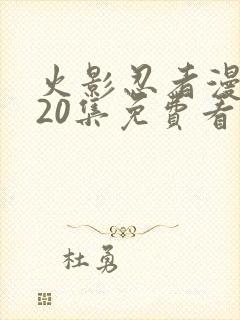 火影忍者漫
20集免費看
杜勇